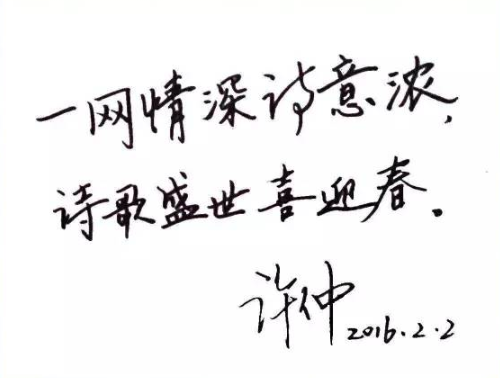 一网情深诗意浓，
诗歌盛世喜迎春。
许仲 2016.2.2